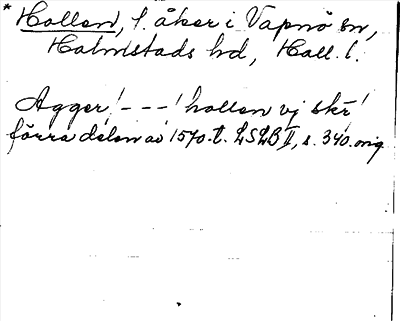 * Hollen, f. åker i Vapnö sn,
Halmstads hd, Hall. l.
Agger! - - - ! hollen vj skr!
förra delen av 1570-t. LSLB II, s. 340. orig.